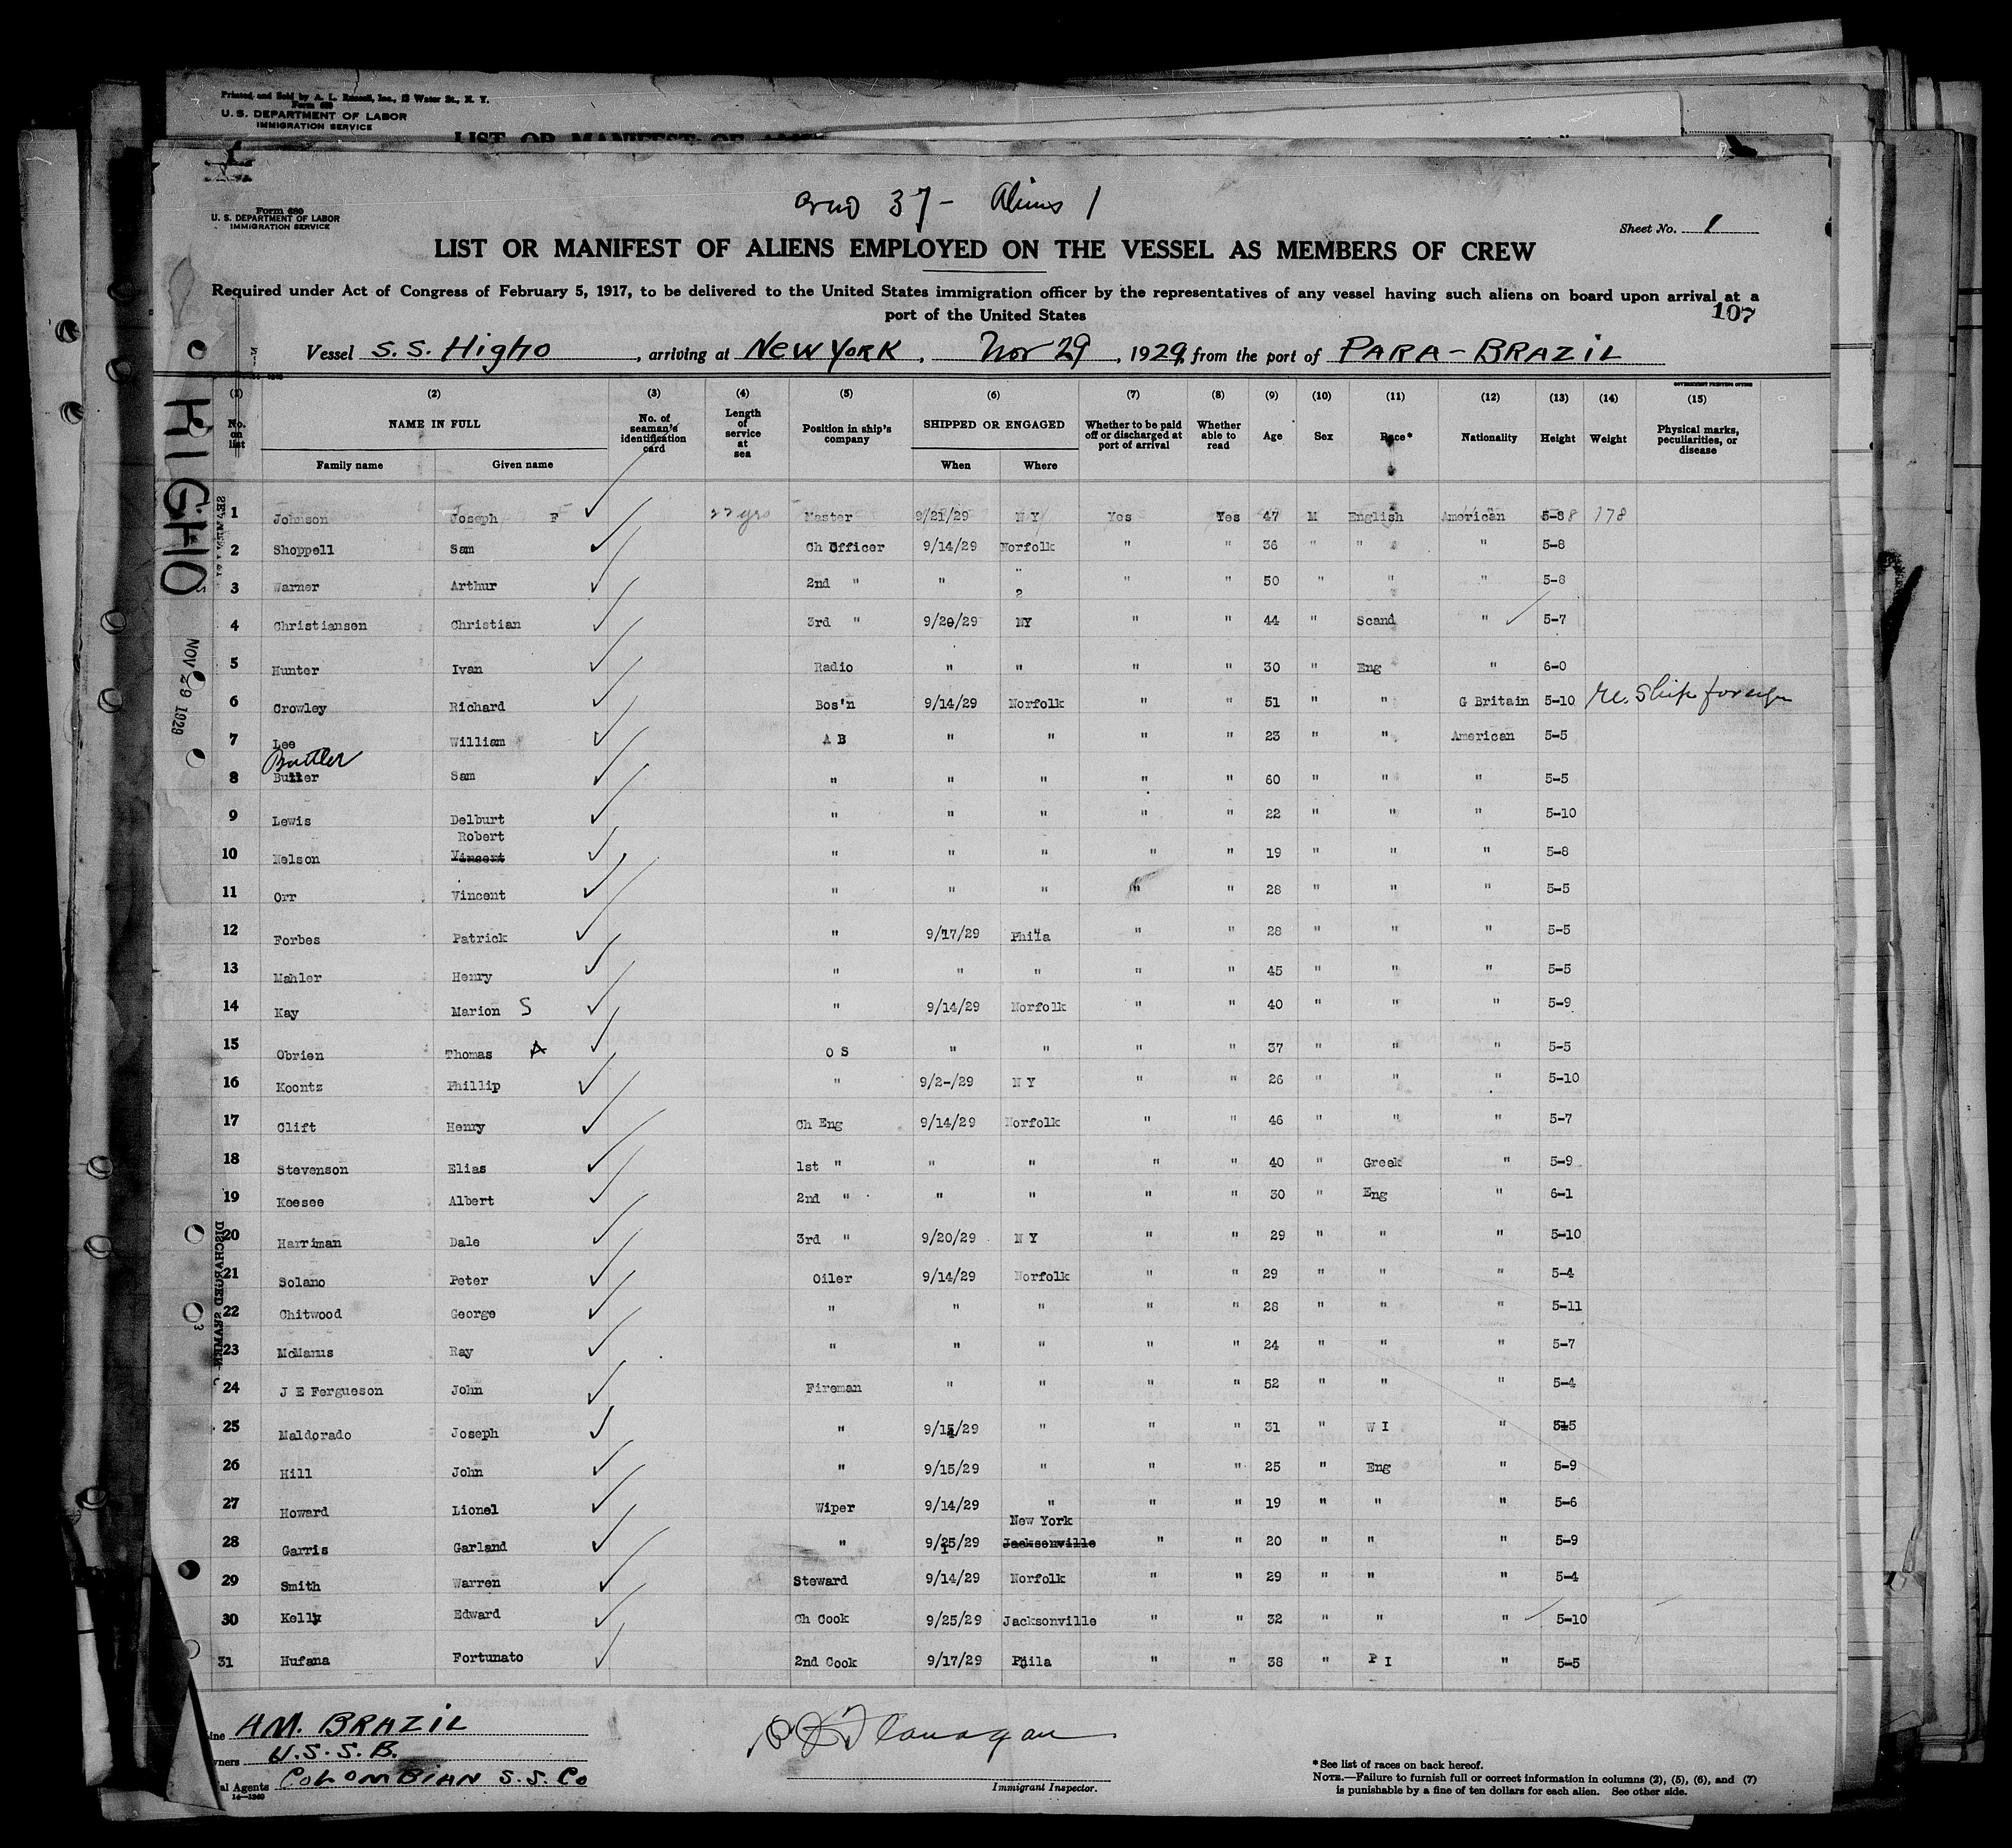 Printed and Sold by A. L. Russell, Inc., 12 Water St., N. Y.
Form 680
U. S. DEPARTMENT OF LABOR
IMMIGRATION SERVICE
LIST OR MANIFEST OF
37 - Aliens 1
Form 680
U. S. DEPARTMENT OF LABOR
IMMIGRATION SERVICE
Sheet No. 1
LIST OR MANIFEST OF ALIENS EMPLOYED ON THE VESSEL AS MEMBERS OF CREW
Required under Act of Congress of February 5, 1917, to be delivered to the United States immigration officer by the representatives of any vessel having such aliens on board upon arrival at a
port of the United States
107
Vessel S.S. Higho, arriving at New York, Nov 29, 1929, from the port of PARA - BRAZIL
GOVERNMENT PRINTING OFFICE
(1) (2) (3) (4) (5) (6) (7) (8) (9) (10) (11) (12) (13) (14) (15)
No. on list NAME IN FULL No. of seaman's identification card Length of service at sea Position in ship's company SHIPPED OR ENGAGED Whether to be paid off or discharged at port of arrival Whether able to read Age Sex Race* Nationality Height Weight Physical marks, peculiarities, or disease
Family name Given name When Where
1 Johnson Joseph F 27 yrs Master 9/21/29 N Y Yes Yes 47 M English American 5-8 8 178
2 Shoppell Sam Ch Officer 9/14/29 Norfolk " " 36 " " " 5-8
3 Warner Arthur 2nd " " " " " 50 " " " 5-8
4 Christiansen Christian 3rd " 9/20/29 NY " " 44 " Scand " 5-7
5 Hunter Ivan Radio " " " " 30 " Eng " 6-0
6 Crowley Richard Bos'n 9/14/29 Norfolk " " 51 " " G Britain 5-10 re. ship foreign
7 Lee William A B " " " " 23 " " American 5-5
Buttler
8 Butler Sam " " " " " 60 " " " 5-5
9 Lewis Delburt " " " " " 22 " " " 5-10
Robert
10 Nelson Vincent " " " " " 19 " " " 5-8
11 Orr Vincent " " " " " 28 " " " 5-5
12 Forbes Patrick " 9/17/29 Phila " " 28 " " " 5-5
13 Mahler Henry " " " " " 45 " " " 5-5
14 Kay Marion S " 9/14/29 Norfolk " " 40 " " " 5-9
15 Obrien Thomas A O S " " " " 37 " " " 5-5
16 Koontz Phillip " 9/2-/29 N Y " " 26 " " " 5-10
17 Clift Henry Ch Eng 9/14/29 Norfolk " " 46 " " " 5-7
18 Stevenson Elias 1st " " " " " 40 " Greek " 5-9
19 Keesee Albert 2nd " " " " " 30 " Eng " 6-1
20 Harriman Dale 3rd " 9/20/29 N Y " " 29 " " " 5-10
21 Solano Peter Oiler 9/14/29 Norfolk " " 29 " " " 5-4
22 Chitwood George " " " " " 28 " " " 5-11
23 McManus Ray " " " " " 24 " " " 5-7
24 J E Fergueson John Fireman " " " " 52 " " " 5-4
25 Maldorado Joseph " 9/15/29 " " " 31 " W I " 5-5
26 Hill John " 9/15/29 " " " 25 " Eng " 5-9
27 Howard Lionel Wiper 9/14/29 " " " 19 " " " 5-6
New York
28 Garris Garland " 9/25/29 Jacksonville " " 20 " " " 5-9
29 Smith Warren Steward 9/14/29 Norfolk " " 29 " " " 5-4
30 Kelly Edward Ch Cook 9/25/29 Jacksonville " " 32 " " " 5-10
31 Hufana Fortunato 2nd Cook 9/17/29 Phila " " 38 " P I " 5-5
HIGHO
NOV 29 1929
DISCHARGED SEAMEN
Line AM. BRAZIL
Owners U.S.S.B.
Local Agents COLOMBIAN S.S. Co
14-1240
Flanagan
Immigrant Inspector.
*See list of races on back hereof.
NOTE.—Failure to furnish full or correct information in columns (2), (5), (6), and (7)
is punishable by a fine of ten dollars for each alien. See other side.